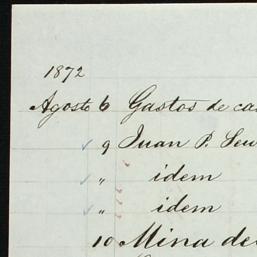 1872
Agosto 6 Gastos de ca
9 Juan P.
" idem
" idem
10 Mina de